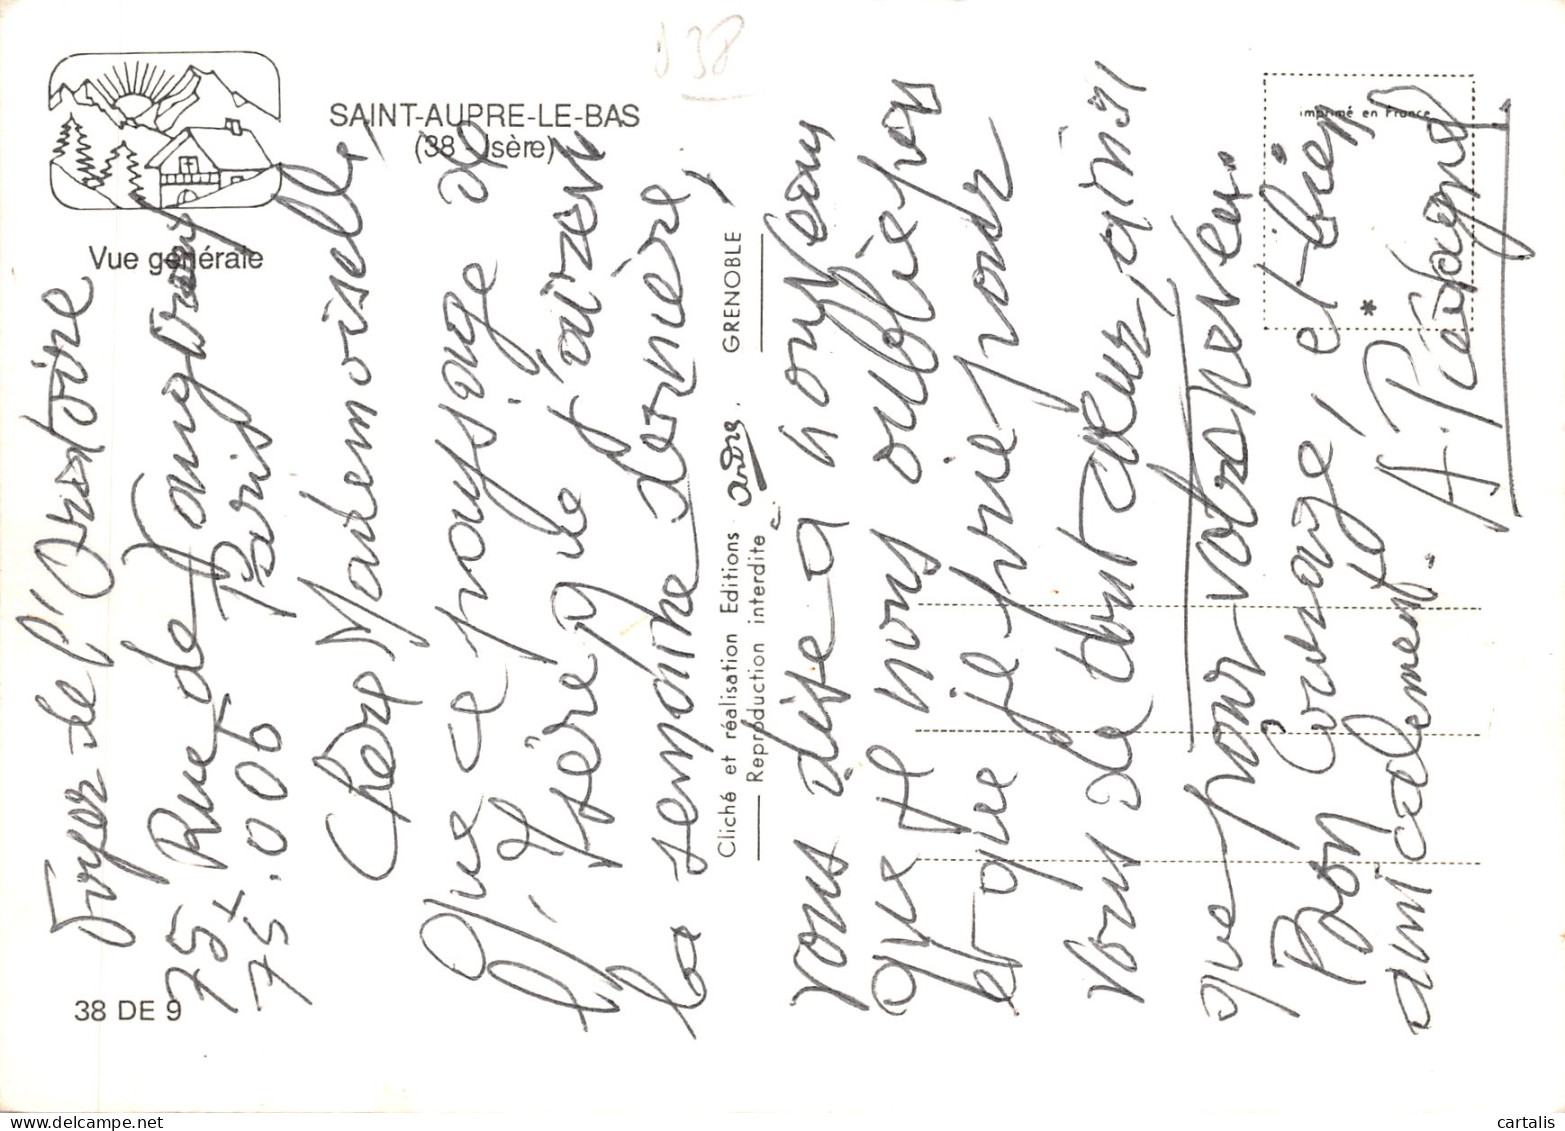 SAINT-AUPRE-LE-BAS
(38 - Isère)
Vue générale
38 DE 9
Cliché et réalisation Editions andré . GRENOBLE
Reproduction interdite
imprimé en France
*
38
Foyer de l'Oratoire
75 Rue de Vaugirard
75.006 Paris
Chère Mademoiselle,
Que ce paysage de
l'Isère, que j'
la semaine dernière,
vous dise à nouveau
que je nous oublie pas
et que je prie pour
vous de tout cœur, ainsi
que pour votre neveu.
Bon Courage, et bien
amicalement.
A.
cartalis